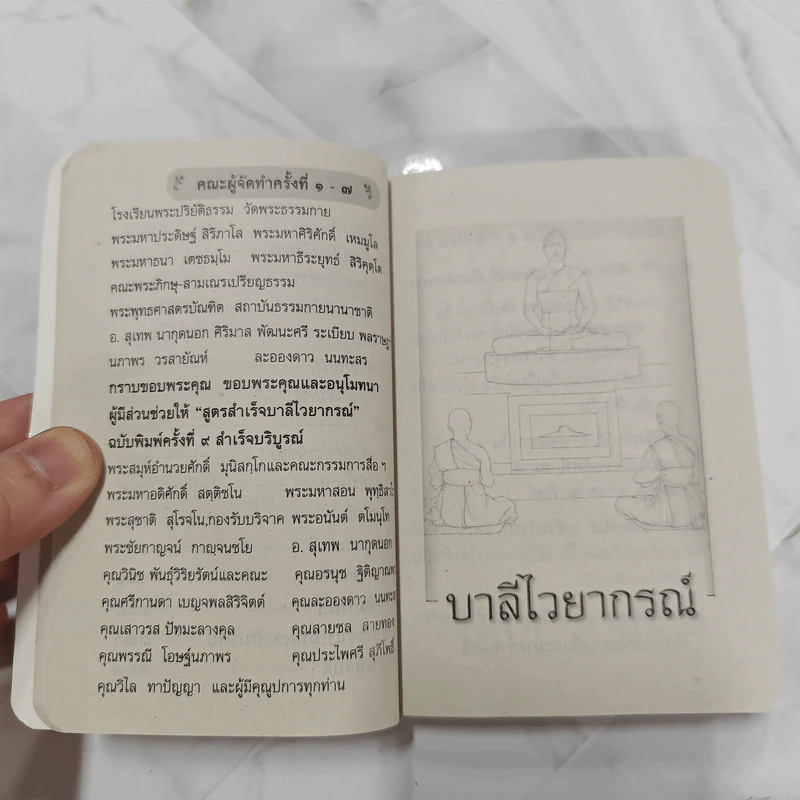 คณะผู้จัดทำครั้งที่ ๑ - ๗
โรงเรียนพระปริยัติธรรม วัดพระธรรมกาย
พระมหาประดิษฐ์ สิรีภาโส พระมหาศิริศักดิ์ เหมมูโล
พระมหาธนา เตชธมฺโม พระมหาธีระยุทธ์ สิริคุตฺโต
คณะพระภิกษุ-สามเณรเปรียญธรรม
พระพุทธศาสตรบัณฑิต สถาบันธรรมกายนานาชาติ
อ. สุเทพ นากุดนอก ศิริมาส พัฒนะศรี ระเบียบ
นภาพร วรสายัณห์ ละอองดาว นนทะสร
กราบขอบพระคุณ ขอบพระคุณและอนุโมทนา
ผู้มีส่วนช่วยให้ “สูตรสำเร็จบาลีไวยากรณ์”
ฉบับพิมพ์ครั้งที่ ๙ สำเร็จบริบูรณ์
พระสมุห์อำนวยศักดิ์ มุนิสกฺโกและคณะกรรมการสื่อ ฯ
พระมหาอดิศักดิ์ สตฺติชโน พระมหาสอน
พระสุชาติ สุโรจโน,กองรับบริจาค พระอนันต์ ตโมนุโท
พระชัยกาญจน์ กาญจนชโย อ. สุเทพ นากุดนอก
คุณวินิช พันธุ์วิริยรัตน์และคณะ คุณอรนุช
คุณศรีกานดา เบญจพลสิริจิตต์ คุณละอองดาว
คุณเสาวรส ปัทมะลางคุล คุณสายชล สายทอง
คุณพรรณี โอษฐ์นภาพร คุณประไพศรี สุภีโพธิ์
คุณวิไล ทาปัญญา และผู้มีคุณูปการทุกท่าน
บาลีไวยากรณ์